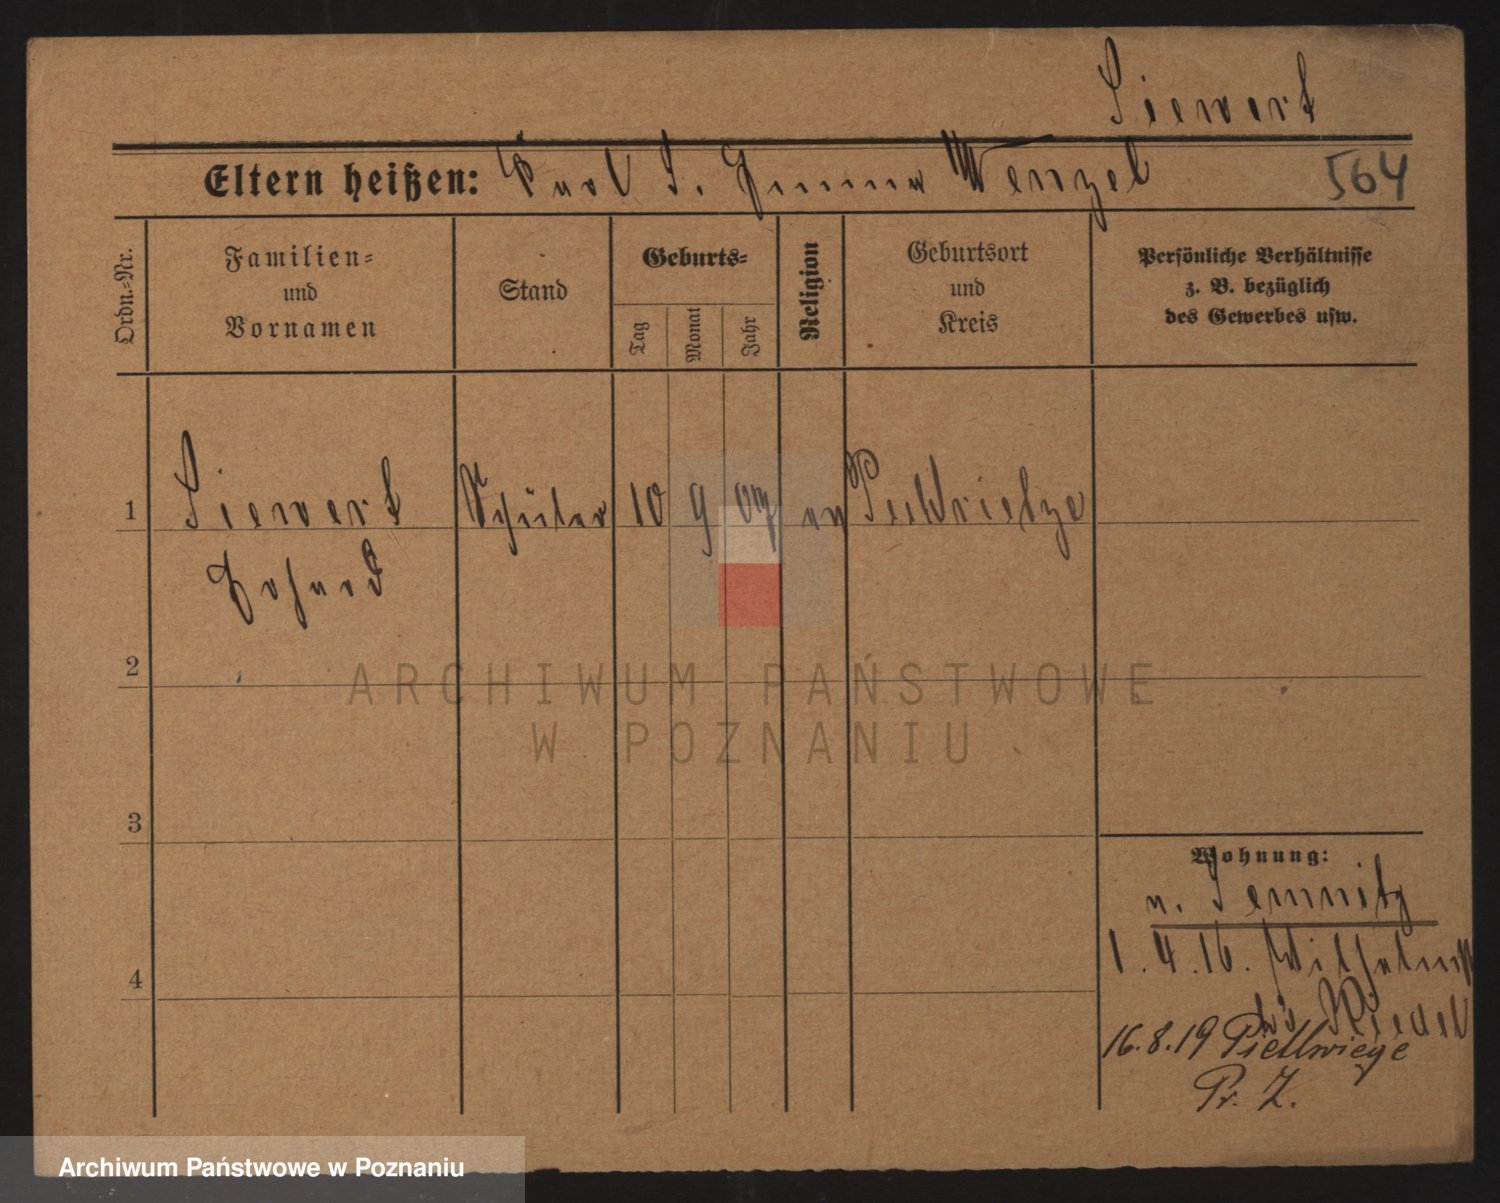 Siewert
Eltern heißen: Karl S. Emma Wenzel 564
Ordn.-Nr.
Familien-
und
Vornamen
Stand
Geburts-
Tag
Monat
Jahr
Religion
Geburtsort
und
Kreis
Persönliche Verhältnisse
z. B. bezüglich
des Gewerbes usw.
1 Siewert Schüler 10 9 ev
Erhard
2
ARCHIWUM PAŃSTWOWE
W POZNANIU
3
Wohnung:
n.
4
1.4.16.
b/
16.8.19
Pr. Z.
Archiwum Państwowe w Poznaniu